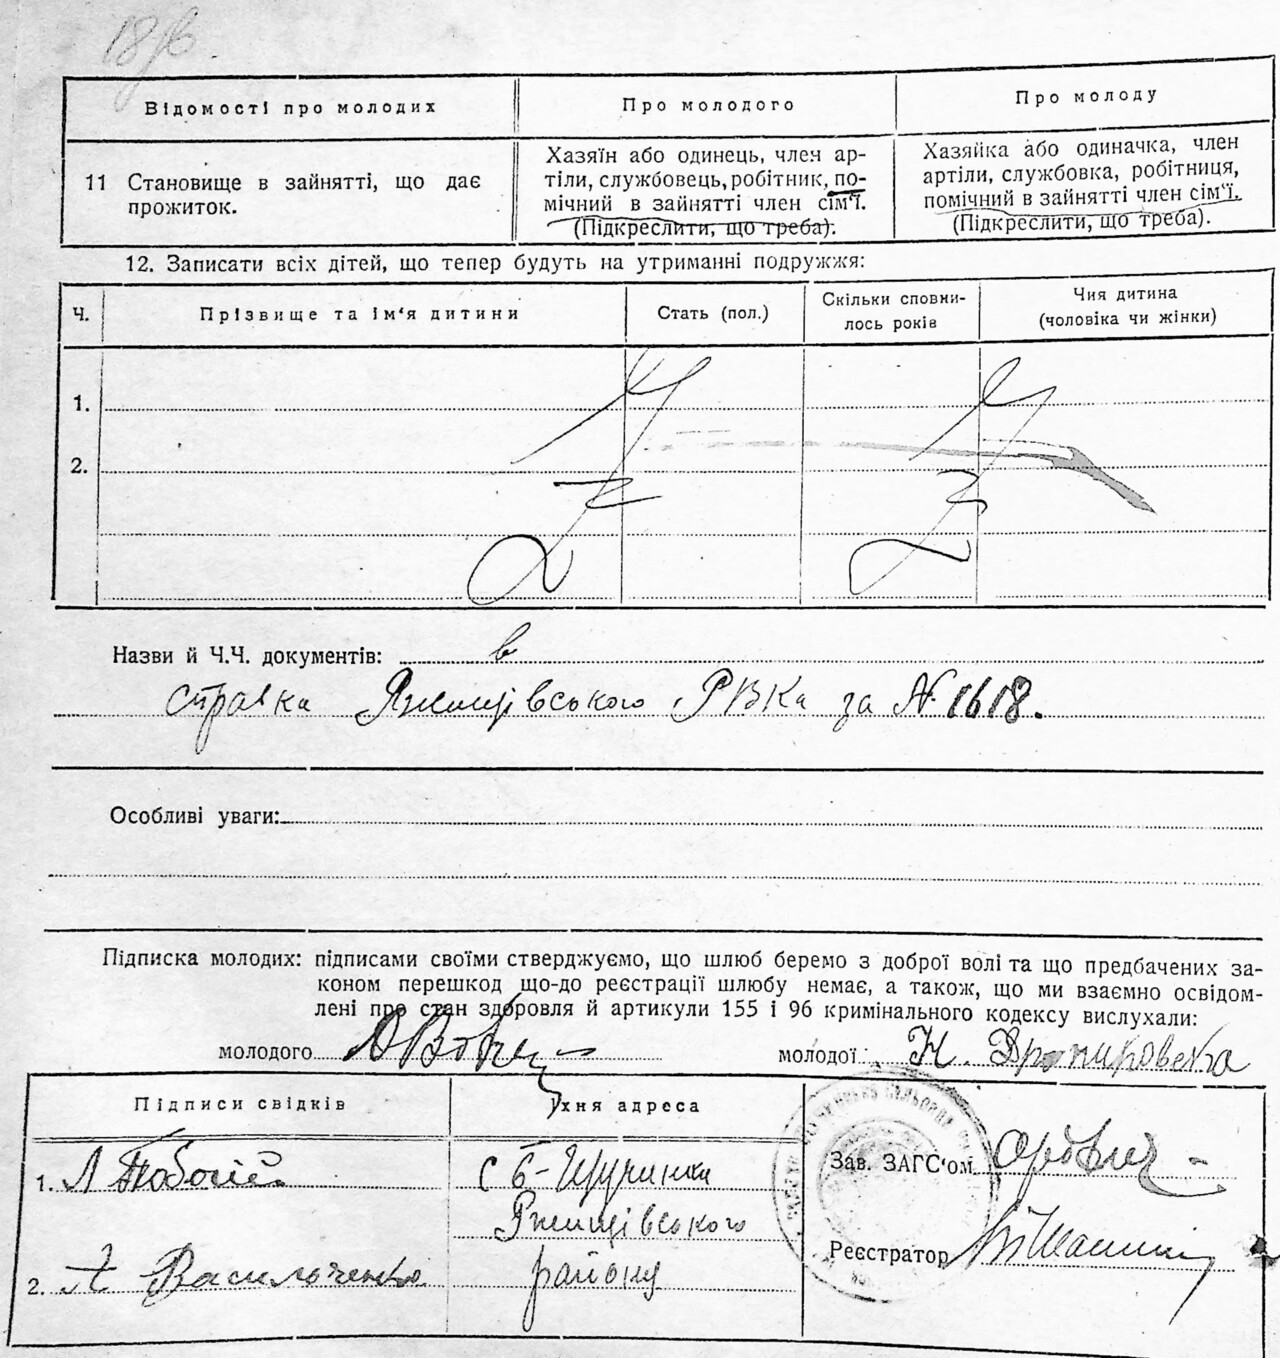 Відомості про молодих
Про молодого
Про молоду
11 Становище в зайнятті, що дає
прожиток.
Хазяїн або одинець, член ар-
тіли, службовець, робітник, по-
мічний в зайнятті член сім'ї.
(Підкреслити, що треба).
Хазяйка або одиначка, член
артіли, службовка, робітниця,
помічний в зайнятті член сім'ї.
(Підкреслити, що треба).
12. Записати всіх дітей, що тепер будуть на утриманні подружжя:
Ч.
Прізвище та ім'я дитини
Стать (пол.)
Скільки сповни-
лось років
Чия дитина
(чоловіка чи жінки)
1.
2.
Назви й Ч.Ч. документів:
справка Ржищівського РВКа за № 1618.
Особливі уваги:
Підписка молодих: підписами своїми стверджуємо, що шлюб беремо з доброї волі та що предбачених за-
коном перешкод що-до реєстрації шлюбу немає, а також, що ми взаємно освідом-
лені про стан здоровля й артикули 155 і 96 кримінального кодексу вислухали:
молодого
молодої: К.
Підписи свідків
Їхня адреса
1. Л
с Б-
Ржищівського
2. А Васильченко
району
Зав. ЗАГС'ом
Реєстратор